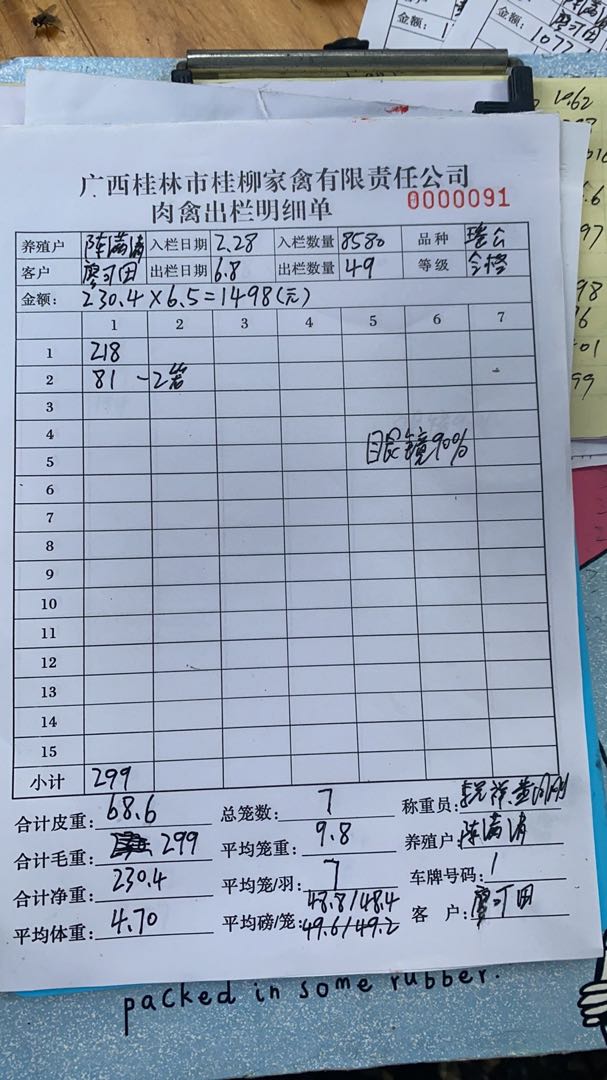 金额: 1
金额:
1077
10.62
广西桂林市桂柳家禽有限责任公司
肉禽出栏明细单 0000091
养殖户 陈满清 入栏日期 2.28 入栏数量 8580 品种
客户 廖可田 出栏日期 6.8 出栏数量 49 等级 合格
金额: 230.4×6.5=1498(元)
1 2 3 4 5 6 7
1 218
2 81 -2笼
3
4
眼镜90%
5
6
7
8
9
10
11
12
13
14
15
小计 299
合计皮重: 68.6 总笼数: 7 称重员:
合计毛重: 299 平均笼重: 9.8 养殖户: 陈满清
合计净重: 230.4 平均笼/羽: 7 车牌号码: 1
平均体重: 4.70 平均磅/笼: 48.8/48.4 49.6/49.2 客 户: 廖可田
packed in some rubber.